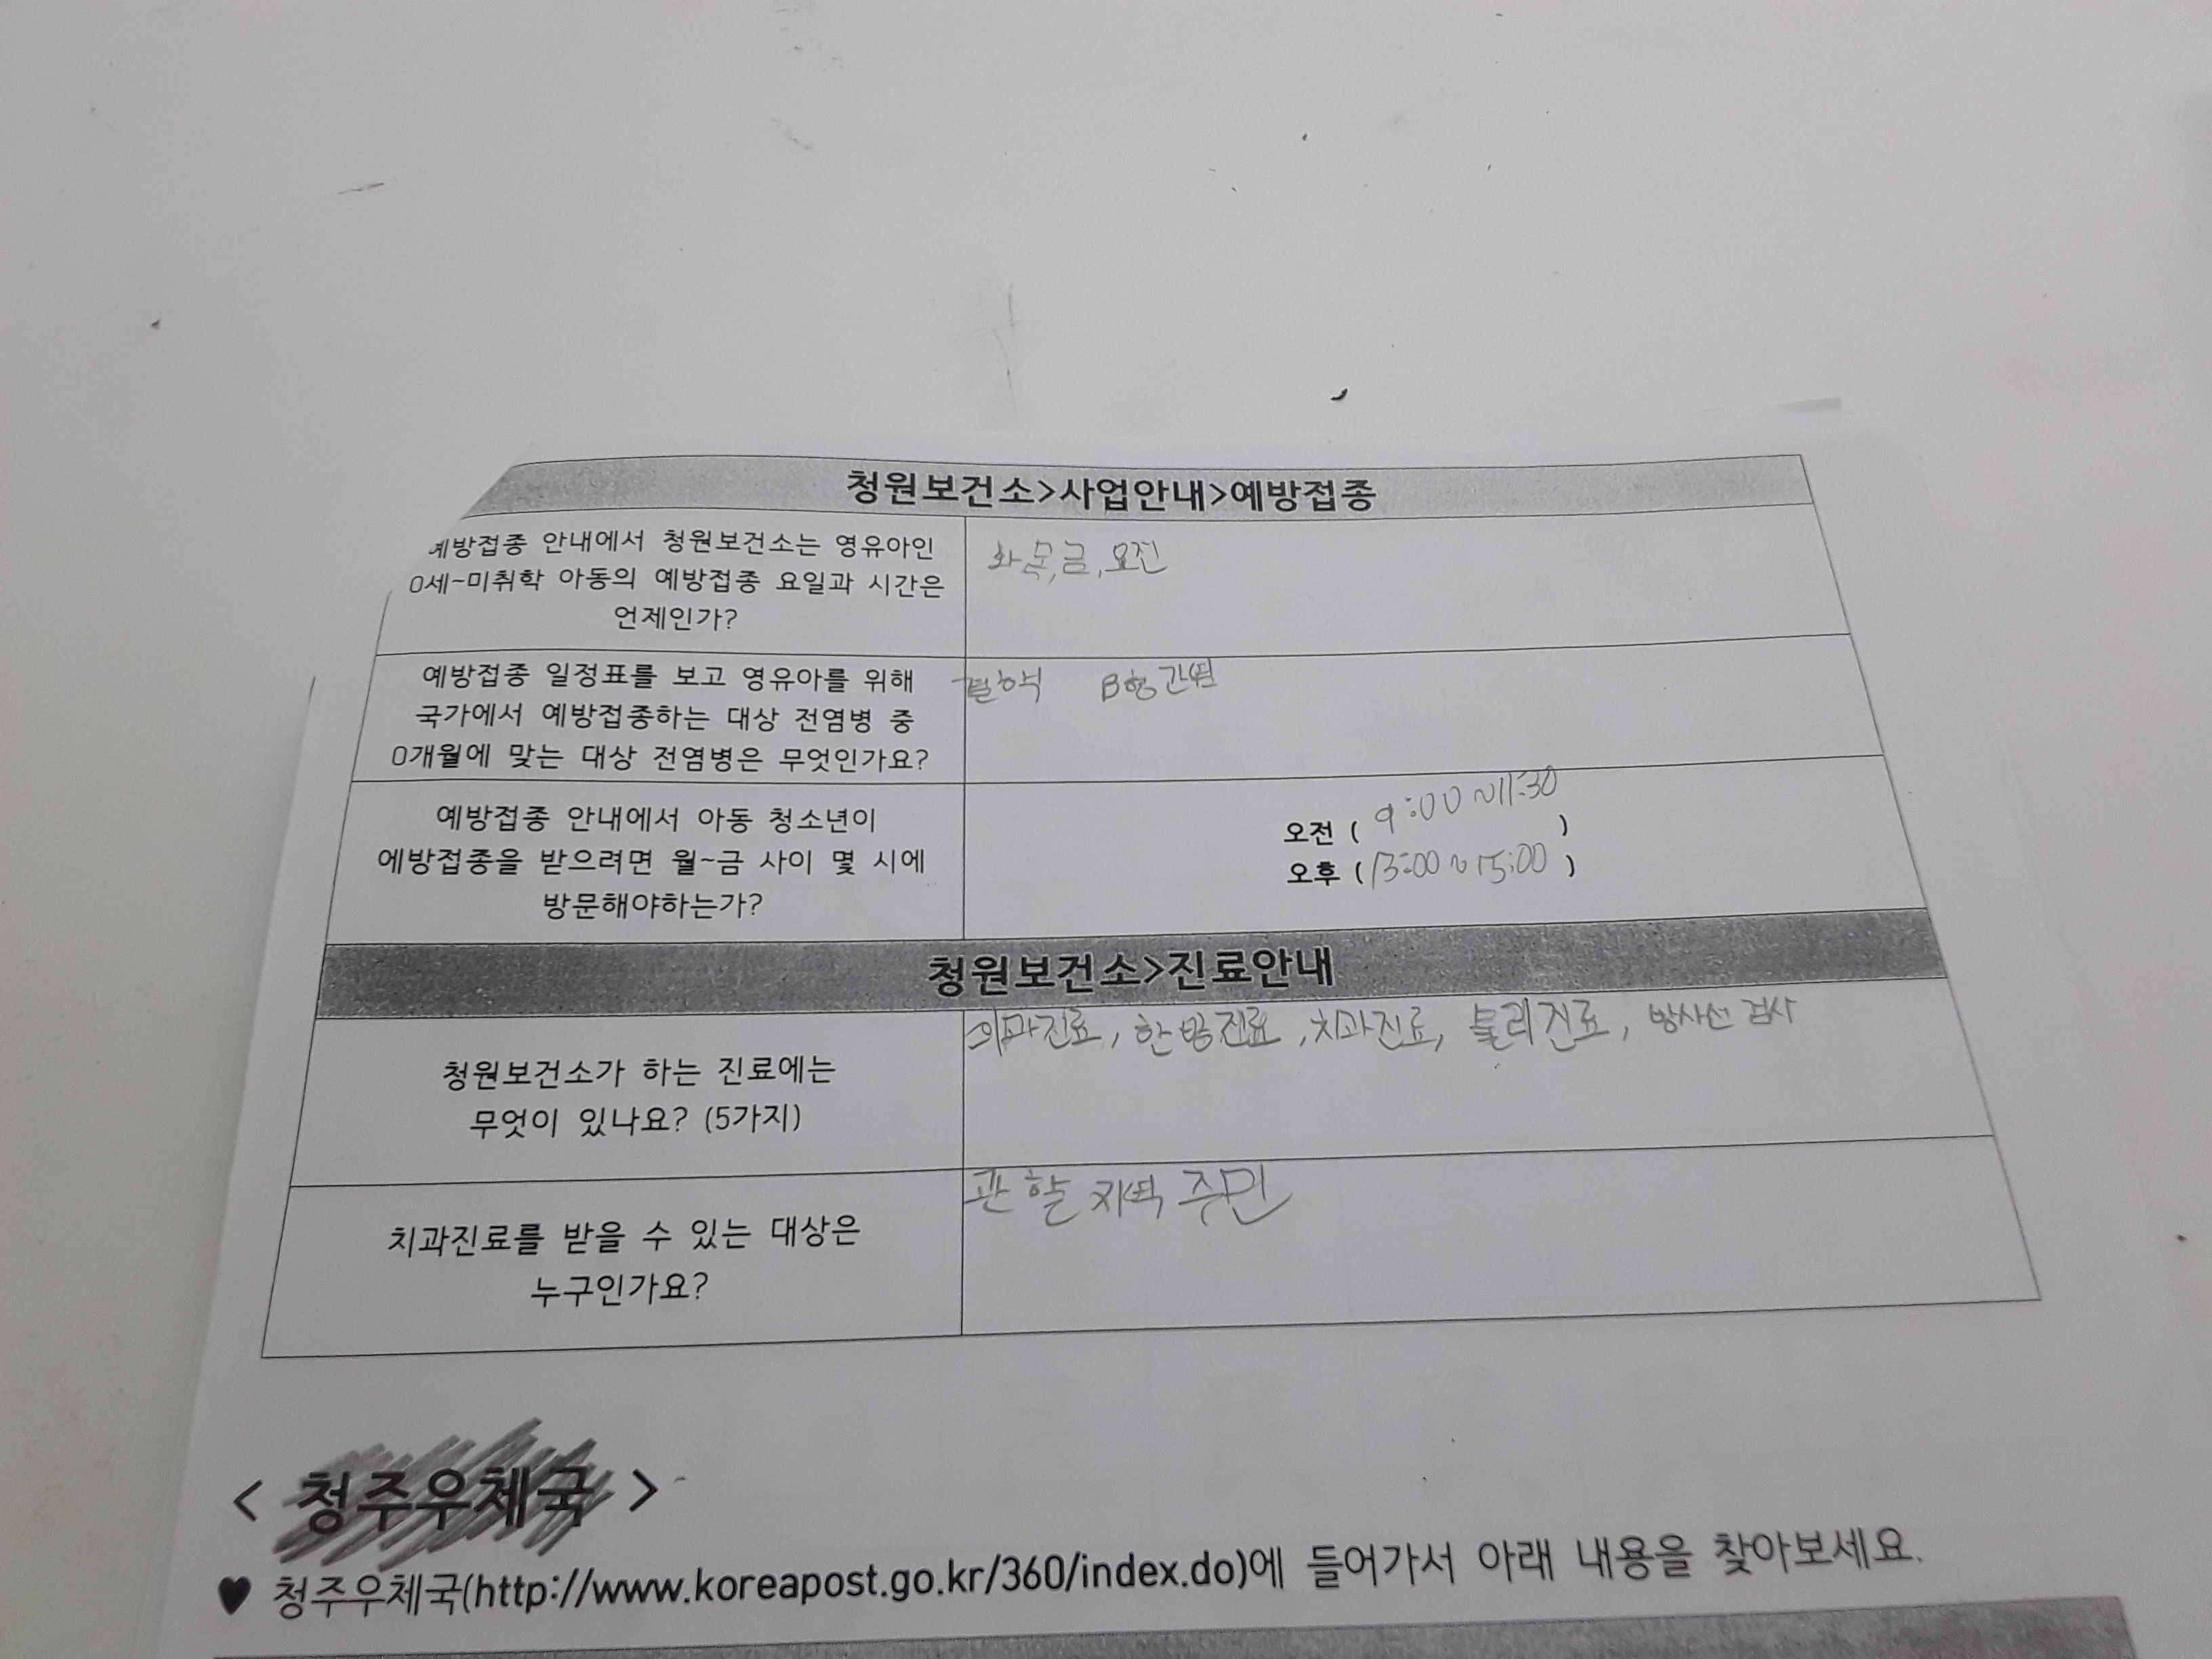 청원보건소>사업안내>예방접종
예방접종 안내에서 청원보건소는 영유아인
0세~미취학 아동의 예방접종 요일과 시간은
언제인가?
화 목,금,오전
예방접종 일정표를 보고 영유아를 위해
국가에서 예방접종하는 대상 전염병 중
0개월에 맞는 대상 전염병은 무엇인가요?
B형간염
예방접종 안내에서 아동 청소년이
에방접종을 받으려면 월~금 사이 몇 시에
방문해야하는가?
오전 ( 9:00~11:30 )
오후 (13:00~15:00 )
청원보건소>진료안내
청원보건소가 하는 진료에는
무엇이 있나요? (5가지)
의과진료, 한방진료,치과진료, 물리진료, 방사선 검사
치과진료를 받을 수 있는 대상은
누구인가요?
관할 지역 주민
< 청주우체국 >
♥ 청주우체국(http://www.koreapost.go.kr/360/index.do)에 들어가서 아래 내용을 찾아보세요.